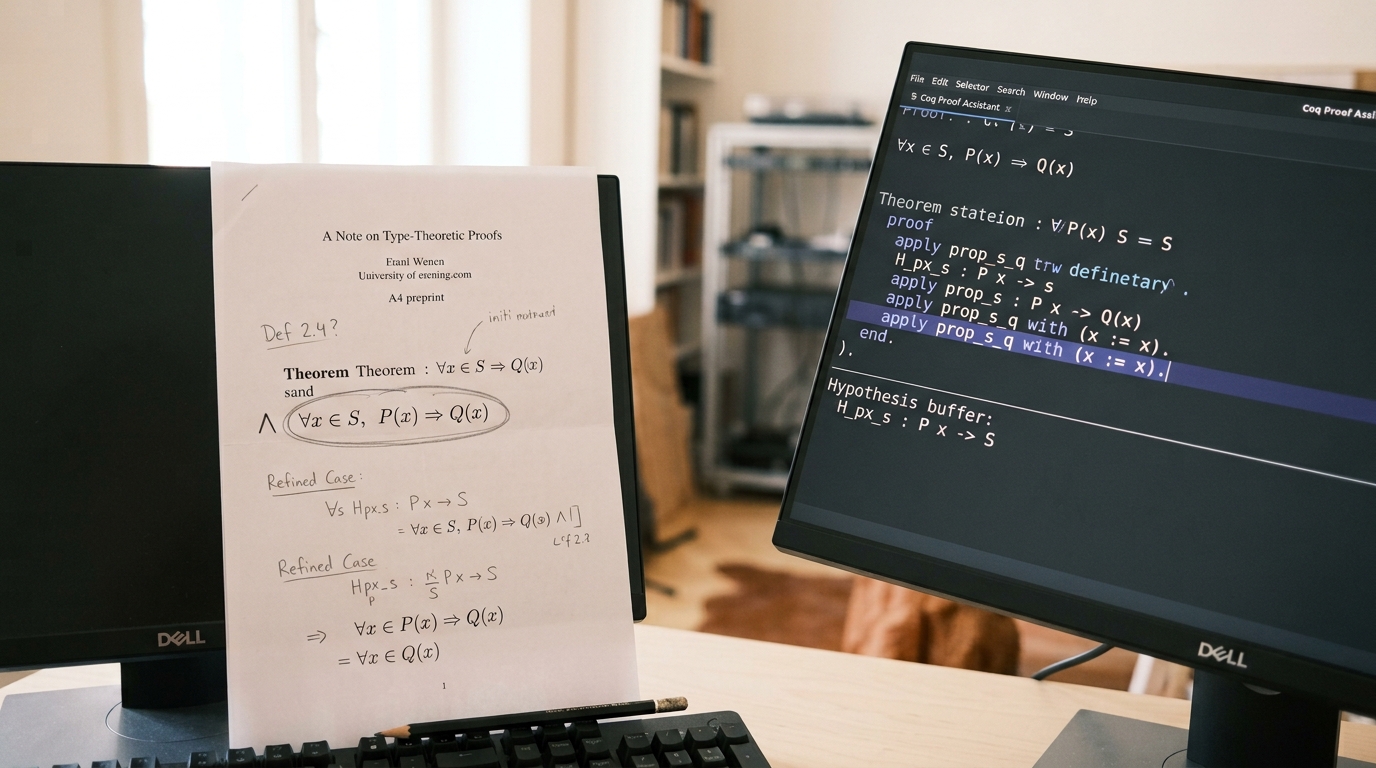 A Note on Type-Theoretic Proofs
Eranl Wenen
University of erening.com
A4 preprint
Def 2.4?
initi
Theorem Theorem : ∀x ∈ S ⇒ Q(x)
sand
∧ ∀x ∈ S, P(x) ⇒ Q(x)
Refined Case:
∀s Hpx_s : Px → S
= ∀x ∈ S, P(x) ⇒ Q(x) ∧
Refined Case
Hpx_s : Px → S
p
S
⇒ ∀x ∈ P(x) ⇒ Q(x)
= ∀x ∈ Q(x)
1
DELL
File Edit Selector Search Window Help
Coq Proof Assi
S Coq Proof Acsistant ×
∀x ∈ S, P(x) ⇒ Q(x)
Theorem stateion : ∀ P(x) S = S
proof
apply prop_s_q trw definetary .
H_px_s : P x -> s
apply prop_s : P x -> Q(x)
apply prop_s_q with (x := x).
apply prop_s_q with (x := x).
end.
).
Hypothesis buffer:
H_px_s : P x -> S
DELL